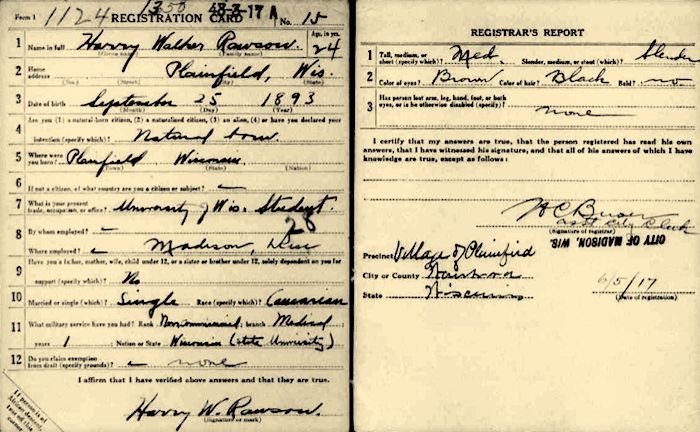 Form 1 1124 1350 REGISTRATION CARD 48-3-17 A No. 15
1 Name in full Harry Walker Rawson. Age, in yrs. 24
(Given name) (Family name)
2 Home address Plainfield, Wis.
(No.) (Street) (City) (State)
3 Date of birth September 25 1893
(Month) (Day) (Year)
4 Are you (1) a natural-born citizen, (2) a naturalized citizen, (3) an alien, (4) or have you declared your
intention (specify which)? Natural born.
5 Where were you born? Plainfield Wisconsin
(Town) (State) (Nation)
6 If not a citizen, of what country are you a citizen or subject? –
7 What is your present trade, occupation, or office? University of Wis. Student.
28
8 By whom employed? –
Where employed? – Madison, Wis
9 Have you a father, mother, wife, child under 12, or a sister or brother under 12, solely dependent on you for
support (specify which)? No
10 Married or single (which)? Single Race (specify which)? Caucasian
11 What military service have you had? Rank Noncommissioned; branch Medical
years 1; Nation or State Wisconsin (State University)
12 Do you claim exemption from draft (specify grounds)? – none
I affirm that I have verified above answers and that they are true.
Harry W. Rawson.
(Signature or mark)
If person is of African descent, tear off this corner
REGISTRAR'S REPORT
1 Tall, medium, or short (specify which)? Med. Slender, medium, or stout (which)? Slender
2 Color of eyes? Brown Color of hair? Black Bald? no
3 Has person lost arm, leg, hand, foot, or both eyes, or is he otherwise disabled (specify)? none
I certify that my answers are true, that the person registered has read his own
answers, that I have witnessed his signature, and that all of his answers of which I have
knowledge are true, except as follows:
Asst City Clerk
(Signature of registrar)
CITY OF MADISON, WIS.
Precinct Village of Plainfield
City or County Waushara
State Wisconsin
6/5/17
(Date of registration)